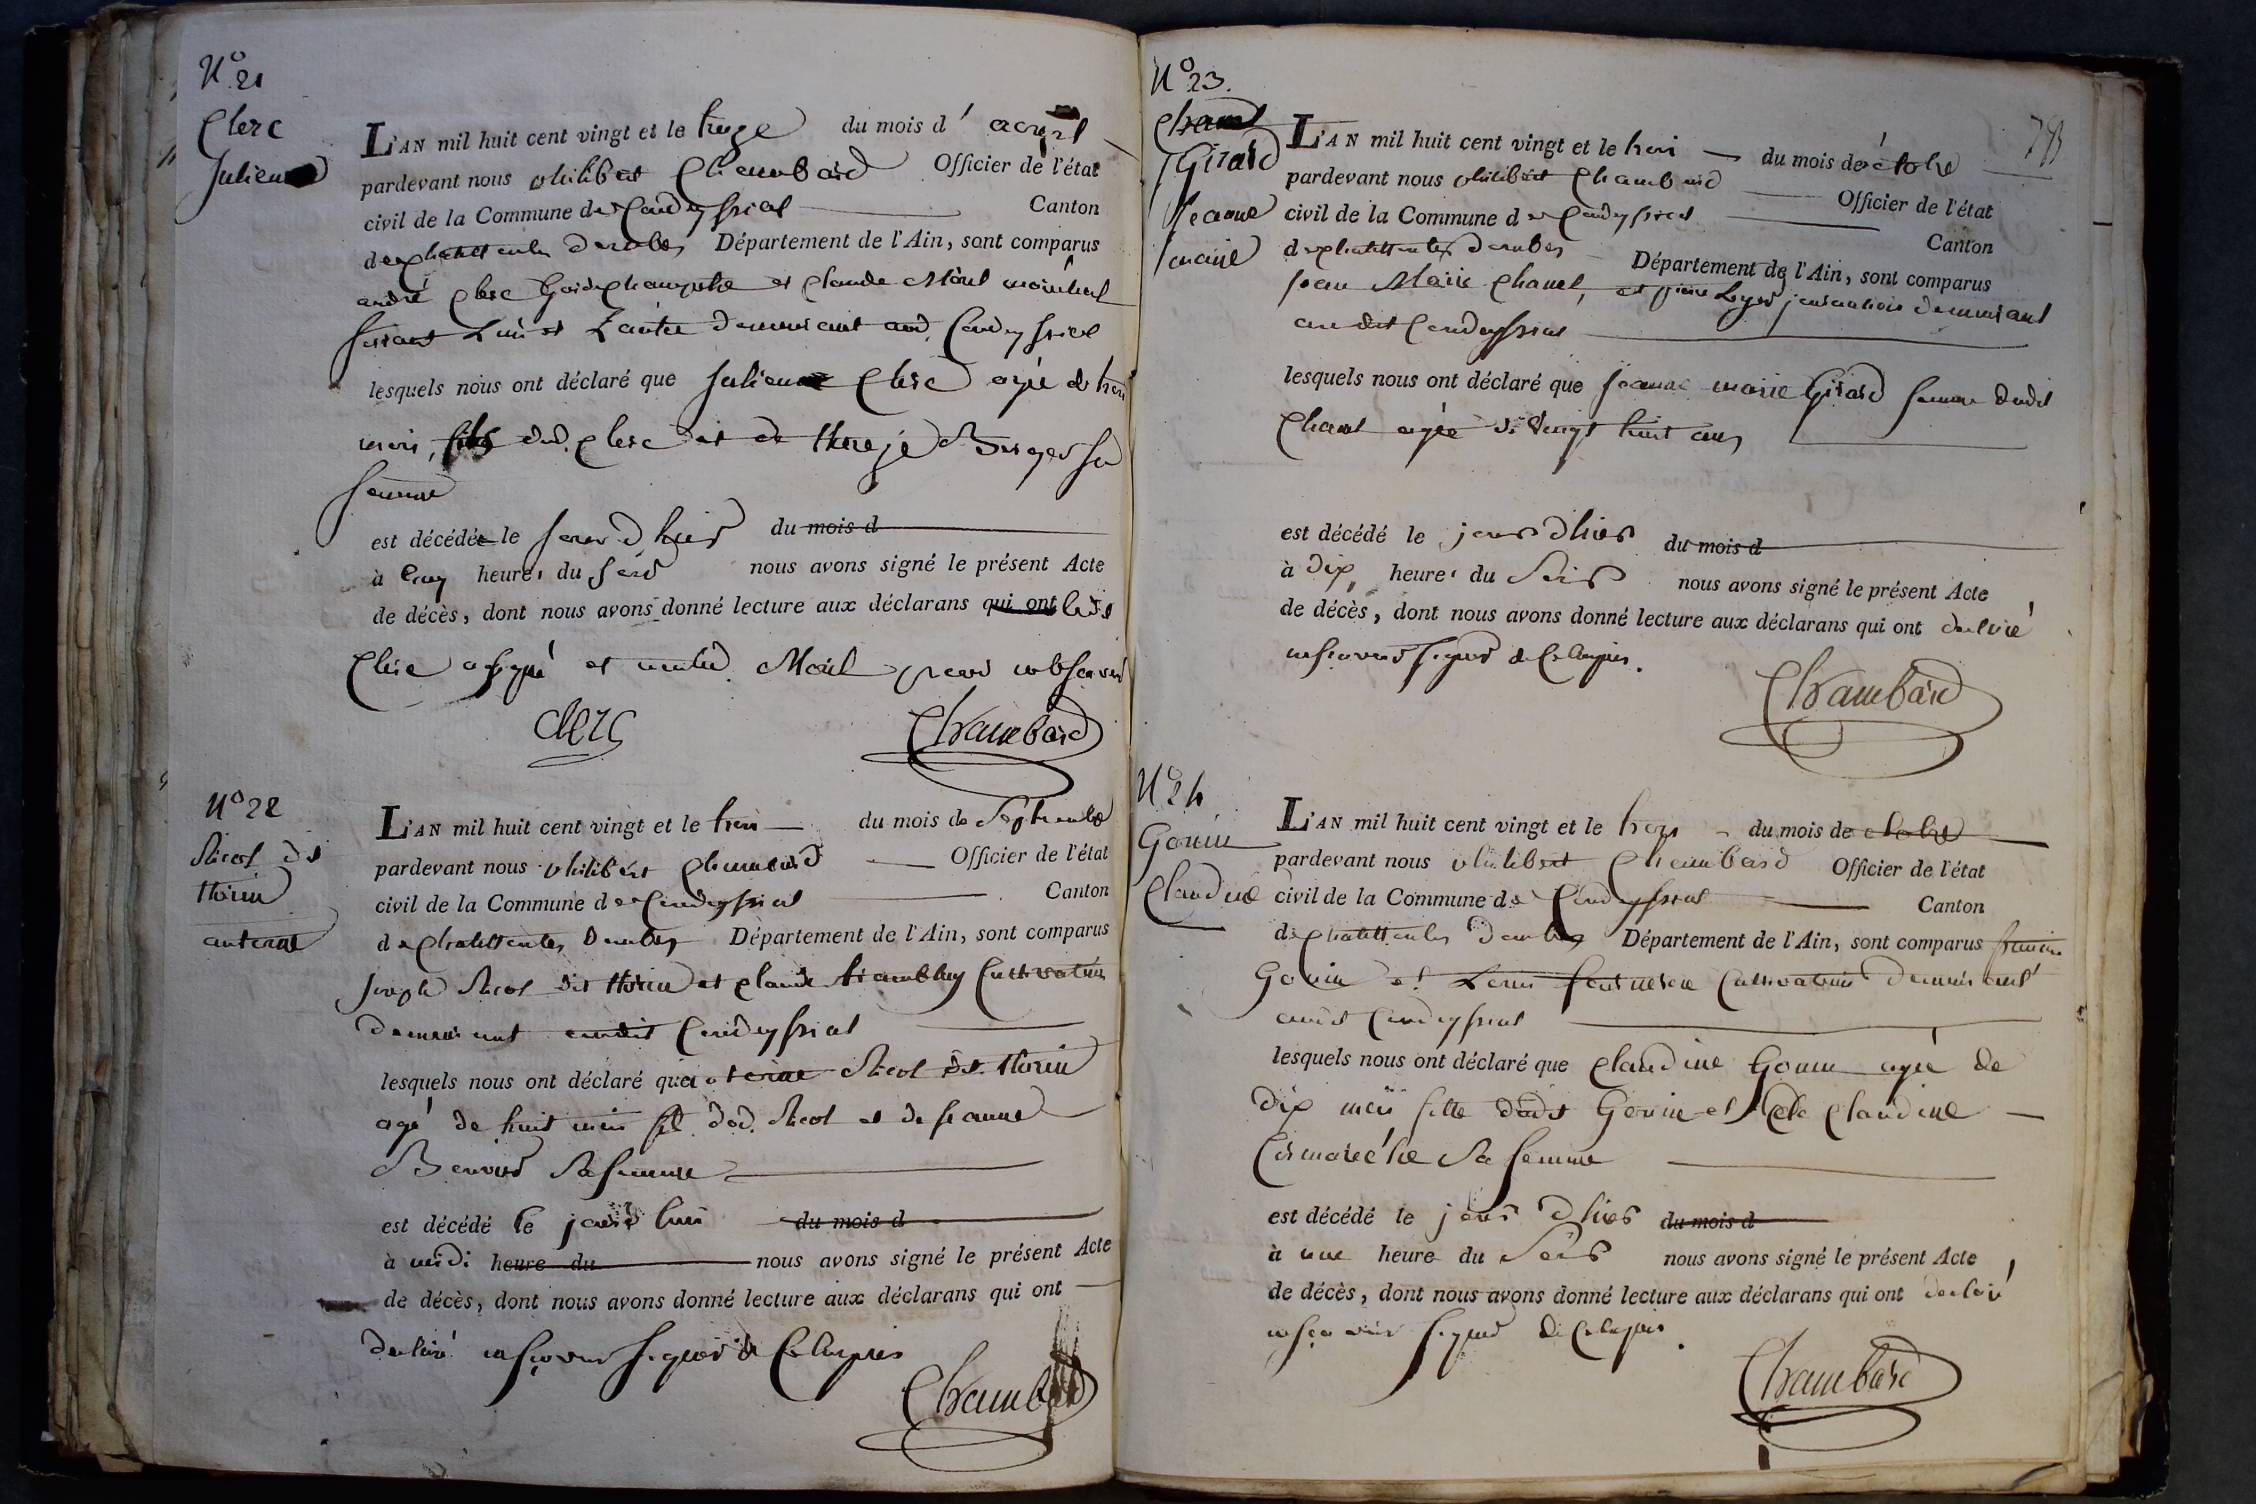 N° 21
Clerc
Julien
L'AN mil huit cent vingt et le treize du mois d'
pardevant nous philibert Chambard Officier de l'état
civil de la Commune de Condeyssiat Canton
de chatillon les dombes Département de l'Ain, sont comparus
andré Clerc Garde Champêtre et Claude Morel maréchal
ferrant L'un et L'autre demeurant aud. Condeyssiat
lesquels nous ont déclaré que Julien Clerc agé de trois
mois, fils dud. Clerc et de Sa
femme
est décédé le jour d'hier du mois d
à cinq heures du soir nous avons signé le présent Acte
de décès, dont nous avons donné lecture aux déclarans qui ont ledit
Clerc a signé et Morel pour
Clerc Chambard
N° 22
Nicol dit
thorin
antoine
L'AN mil huit cent vingt et le trois du mois de Septembre
pardevant nous philibert Chambard Officier de l'état
civil de la Commune de Condeyssiat Canton
de chatillon les Dombes Département de l'Ain, sont comparus
joseph Nicol dit thorin et Claude tramblay Cultivateurs
demeurant audit Condeyssiat
lesquels nous ont déclaré que Nicol dit thorin
agé de huit mois fils dud. Nicol et de jeanne
Sa femme
est décédé le jour d'hui du mois d
à midi heure du nous avons signé le présent Acte
de décès, dont nous avons donné lecture aux déclarans qui ont
declaré ne savoir signer de Ce Requis
Chambard
N° 23.
Chanel
Girard
Jeanne
marie
78
L'AN mil huit cent vingt et le trois du mois de octobre
pardevant nous philibert Chambard Officier de l'état
civil de la Commune de Condeyssiat Canton
de chatillon les dombes Département de l'Ain, sont comparus
jean Marie Chanel, et pierre Loyer journaliers demeurant
au dit Condeyssiat
lesquels nous ont déclaré que jeanne marie Girard femme dudit
Chanel agée de vingt huit ans
est décédé le jour d'hier du mois d
à dix heures du Soir nous avons signé le présent Acte
de décès, dont nous avons donné lecture aux déclarans qui ont declaré
ne savoir signer de Ce Requis.
Chambard
N° 24
Gonin
Claudine
L'AN mil huit cent vingt et le trois du mois de octobre
pardevant nous philibert Chambard Officier de l'état
civil de la Commune de Condeyssiat Canton
de chatillon les Dombes Département de l'Ain, sont comparus
Gonin et Louis Cultivateurs demeurant
audit Condeyssiat
lesquels nous ont déclaré que Claudine Gonin agée de
dix mois fille dudit Gonin et de Claudine
Sa femme
est décédé le jour d'hier du mois d
à une heure du Soir nous avons signé le présent Acte
de décès, dont nous avons donné lecture aux déclarans qui ont declaré
ne savoir signer de Ce Requis.
Chambard